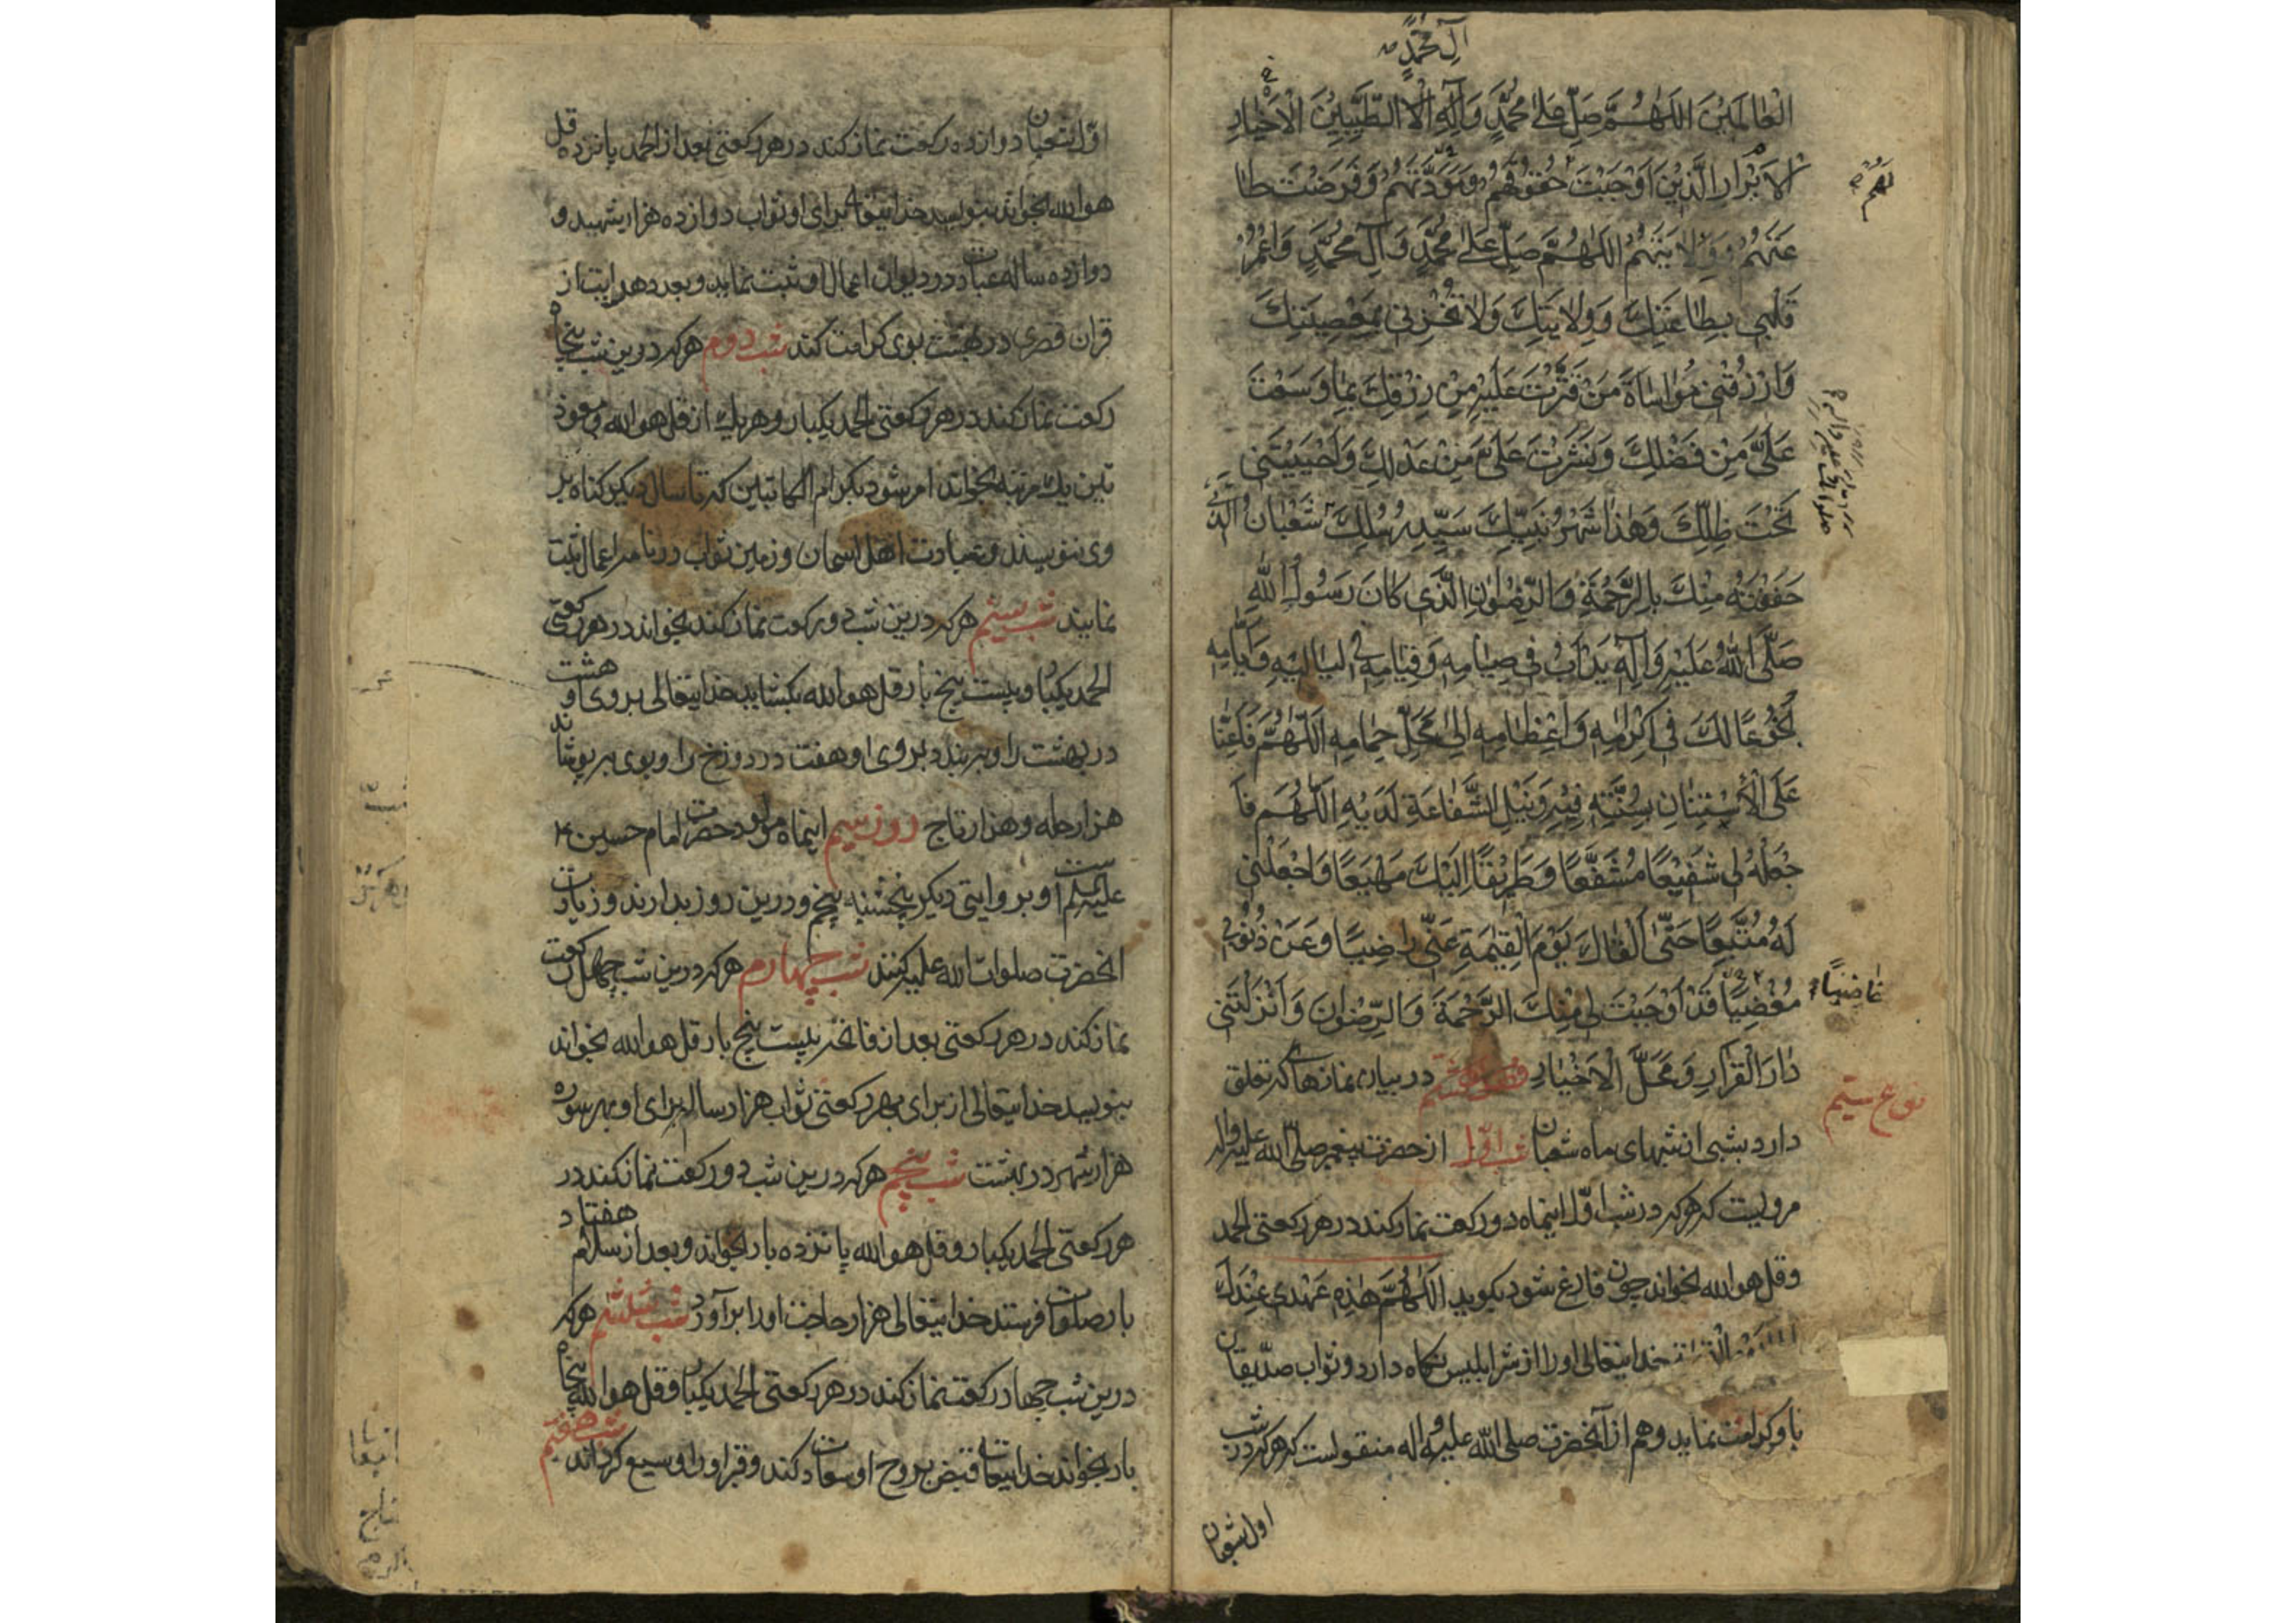 آل محمد
الْعالَمينَ اللّهُمَّ صَلِّ عَلى مُحَمَّدٍ وَآلِهِ الطَّيِّبينَ الْاَخْيارِ
الْاَبْرارِ الَّذينَ اَوْجَبْتَ حُقُوقَهُمْ وَمَوَدَّتَهُمْ وَفَرَضْتَ طا
عَتَهُمْ وَوِلايَتَهُمْ اللّهُمَّ صَلِّ عَلى مُحَمَّدٍ وَآلِ مُحَمَّدٍ وَاعْمُرْ
قَلْبي بِطاعَتِكَ وَوِلايَتِكَ وَلا تُخْزِني بِمَعْصِيَتِكَ
وَارْزُقْني مُواساةَ مَنْ قَتَّرْتَ عَلَيْهِ مِنْ رِزْقِكَ بِما وَسَّعْتَ
عَلَيَّ مِنْ فَضْلِكَ وَنَشَرْتَ عَلَيَّ مِنْ عَدْلِكَ وَاَحْيَيْتَني
تَحْتَ ظِلِّكَ وَهذا شَهْرُ نَبِيِّكَ سَيِّدِ رُسُلِكَ شَعْبانُ الَّذي
حَفَفْتَهُ مِنْكَ بِالرَّحْمَةِ وَالرِّضْوانِ الَّذي كانَ رَسُولُ اللهِ
صَلَّى اللهُ عَلَيْهِ وَآلِهِ يَدْاَبُ في صِيامِهِ وَقِيامِهِ في لَياليهِ وَاَيّامِهِ
بُخُوعًا لَكَ في اِكْرامِهِ وَاِعْظامِهِ اِلى مَحَلِّ حِمامِهِ اللّهُمَّ فَاَعِنّا
عَلَى الْاِسْتِنانِ بِسُنَّتِهِ فيهِ وَنَيْلِ الشَّفاعَةِ لَدَيْهِ اللّهُمَّ فَا
جْعَلْهُ لي شَفيعًا مُشَفَّعًا وَطَريقًا اِلَيْكَ مَهْيَعًا وَاجْعَلْني
لَهُ مُتَّبِعًا حَتّى اَلْقاكَ يَوْمَ الْقِيمَةِ عَنّي راضِيًا وَعَنْ ذُنُوبي
مُغْضِيًا قَدْ اَوْجَبْتَ لي مِنْكَ الرَّحْمَةَ وَالرِّضْوانَ وَاَنْزَلْتَني
غاضيًا
دارَ الْقَرارِ وَمَحَلَّ الْاَخْيارِ در بيان نمازهاى كه تعلق
نوع سيم
دارد بشبى از شبهاى ماه شعبان شب اوّل از حضرت پيغمبر صلى الله عليه واله
مرويست كه هر كه در شب اوّل اينماه دو ركعت نماز كند در هر ركعتى الحمد
وقل هو الله بخواند چون فارغ شود بكويد اللّهُمَّ هذِهِ عَهْدي عِنْدَكَ
خدايتعالى او را از شر ابليس نكاه دارد و ثواب صدّيقان
باو كرامت نمايد وهم از آنحضرت صلى الله عليه واله منقولست كه هر كه در شب
اول شعبان
اوّل شعبان دوازده ركعت نماز كند در هر ركعتى بعد از الحمد پانزده قل
هو الله بخواند بنويسد خدايتعالى براى او ثواب دوازده هزار شهيد و
دوازده ساله عبادت در ديوان اعمال او ثبت نمايد و بعدد هر ايت از
قران قصرى در بهشت بوى كرامت كند شب دوم هر كه درين شب پنجاه
ركعت نماز كند در هر ركعتى الحمد يكبار و هر يك از قل هو الله و معوذ
تين يك مرتبه بخواند امر شود بكرام الكاتبين كه تا سال ديكر كناه بر
وى ننويسند و عبادت اهل اسمان و زمين ثواب در نامه اعمال ثبت
نمايند شب سيم هر كه درين شب دو ركعت نماز كند بخواند در هر ركعتى
الحمد يكبار و بيست پنج بار قل هو الله بكشايد خدايتعالى بروى او هشت
در بهشت را و ببندد بروى او هفت در دوزخ را و بوى بپوشاند
هزار حله و هزار تاج روز سيم اينماه مولود حضرت امام حسين
عليه السلم است و بروايتى ديكر پنجشنبه پنجم و درين روز بدارند و زيارت
انحضرت صلوات الله عليه كنند شب چهارم هر كه درين شب چهل ركعت
نماز كند در هر ركعتى بعد از فاتحه بيست پنج بار قل هو الله بخواند
بنويسد خدايتعالى از براى بهر ركعتى ثواب هزار ساله براى او بهر سوره
هزار شهر در بهشت شب پنجم هر كه درين شب دو ركعت نماز كند در
هر ركعتى الحمد يكبار و قل هو الله پانزده بار بخواند و بعد از سلام هفتاد
بار صلوات فرستد خدايتعالى هزار حاجت او را برآورد شب ششم هر كه
درين شب چهار ركعت نماز كند در هر ركعتى الحمد يكبار و قل هو الله پنجاه
بار بخواند خدايتعالى قبض روح او سعادت كند و قبر او را وسيع كرداند شب هفتم